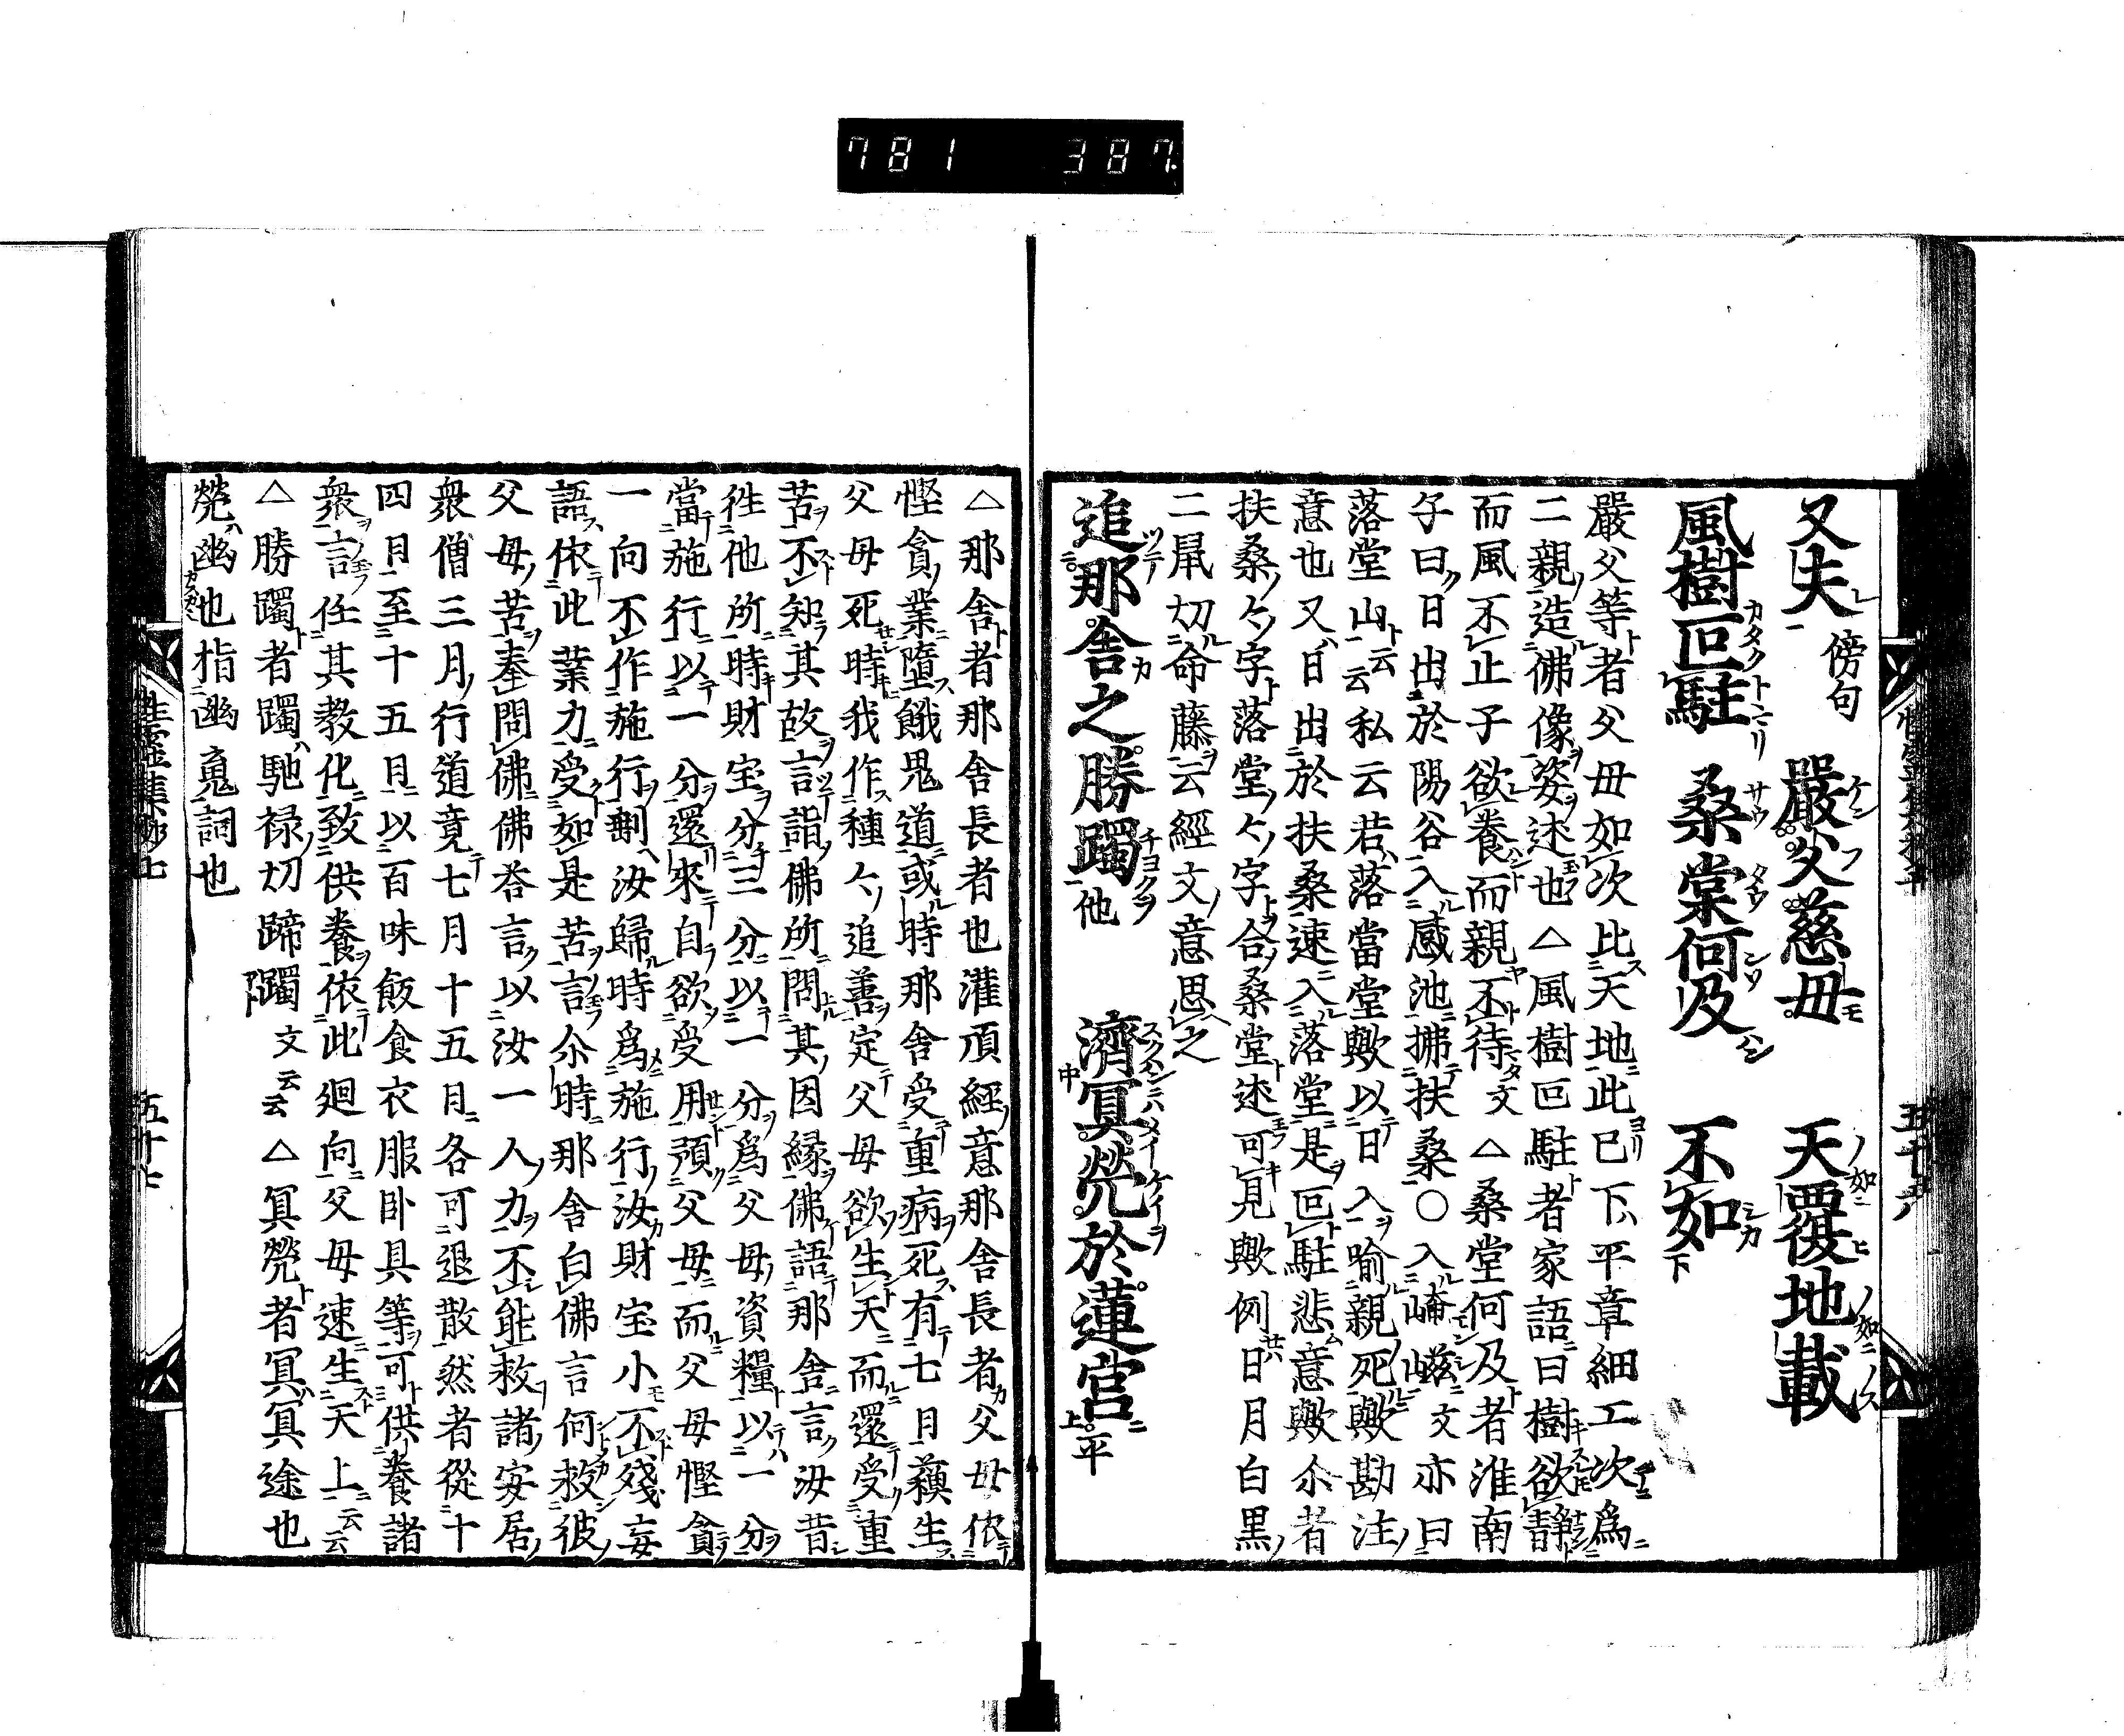 781 387
又夫 傍句 嚴父慈母 天覆地載
風樹叵駐 桑棠何及 不如
嚴父等者父母如次比天地此已下平章細工次爲
二親造佛像姿述也△風樹叵駐者家語曰樹欲靜
而風不止子欲養而親不待文△桑堂何及者淮南
子曰日出於陽谷入感池拂扶桑○入崦嵫文亦曰
落堂山云云私云若落當堂歟以日入喻親死歟勘注
意也又日出於扶桑速入落堂是叵駐悲意歟尒者
扶桑々字落堂々字合桑堂述可見歟例日月白黑
二鼠切命藤云經文意思之
追那舍之勝躅他 濟冥煢於蓮宮
△那舍者那舍長者也灌頂經意那舍長者父母依
慳貪業墮餓鬼道或時那舍受重病死有七日蘓生
父母死時我作種々追善定父母欲生天而還受重
苦不知其故言詣佛所問其因縁佛語那舍言汝昔
徃他所時財宝分三分以一分爲父母資糧以一分
當施行以一分還來自欲受用預父母而父母慳貪
一向不作施行剩汝歸時爲施行汝財宝小不殘妄
語依此業力受如是苦言尒時那舍白佛言何救彼
父母苦奉問佛佛荅言以汝一人力不能救諸安居
衆僧三月行道竟七月十五日各可退散然者從十
四日至十五日以百味飯食衣服卧具等可供養諸
衆言任其教化致供養依此廻向父母速生天上云云
△勝躅者躅馳禄切蹄躅文云云△冥煢者冥冥途也
煢幽也指幽䰟詞也
性靈集鈔七
五十七